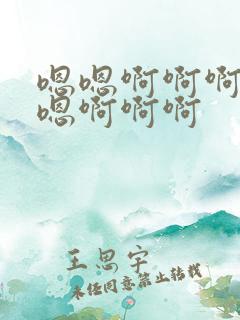 嗯嗯啊啊啊
嗯啊啊啊
王思宇
未经同意禁止转载